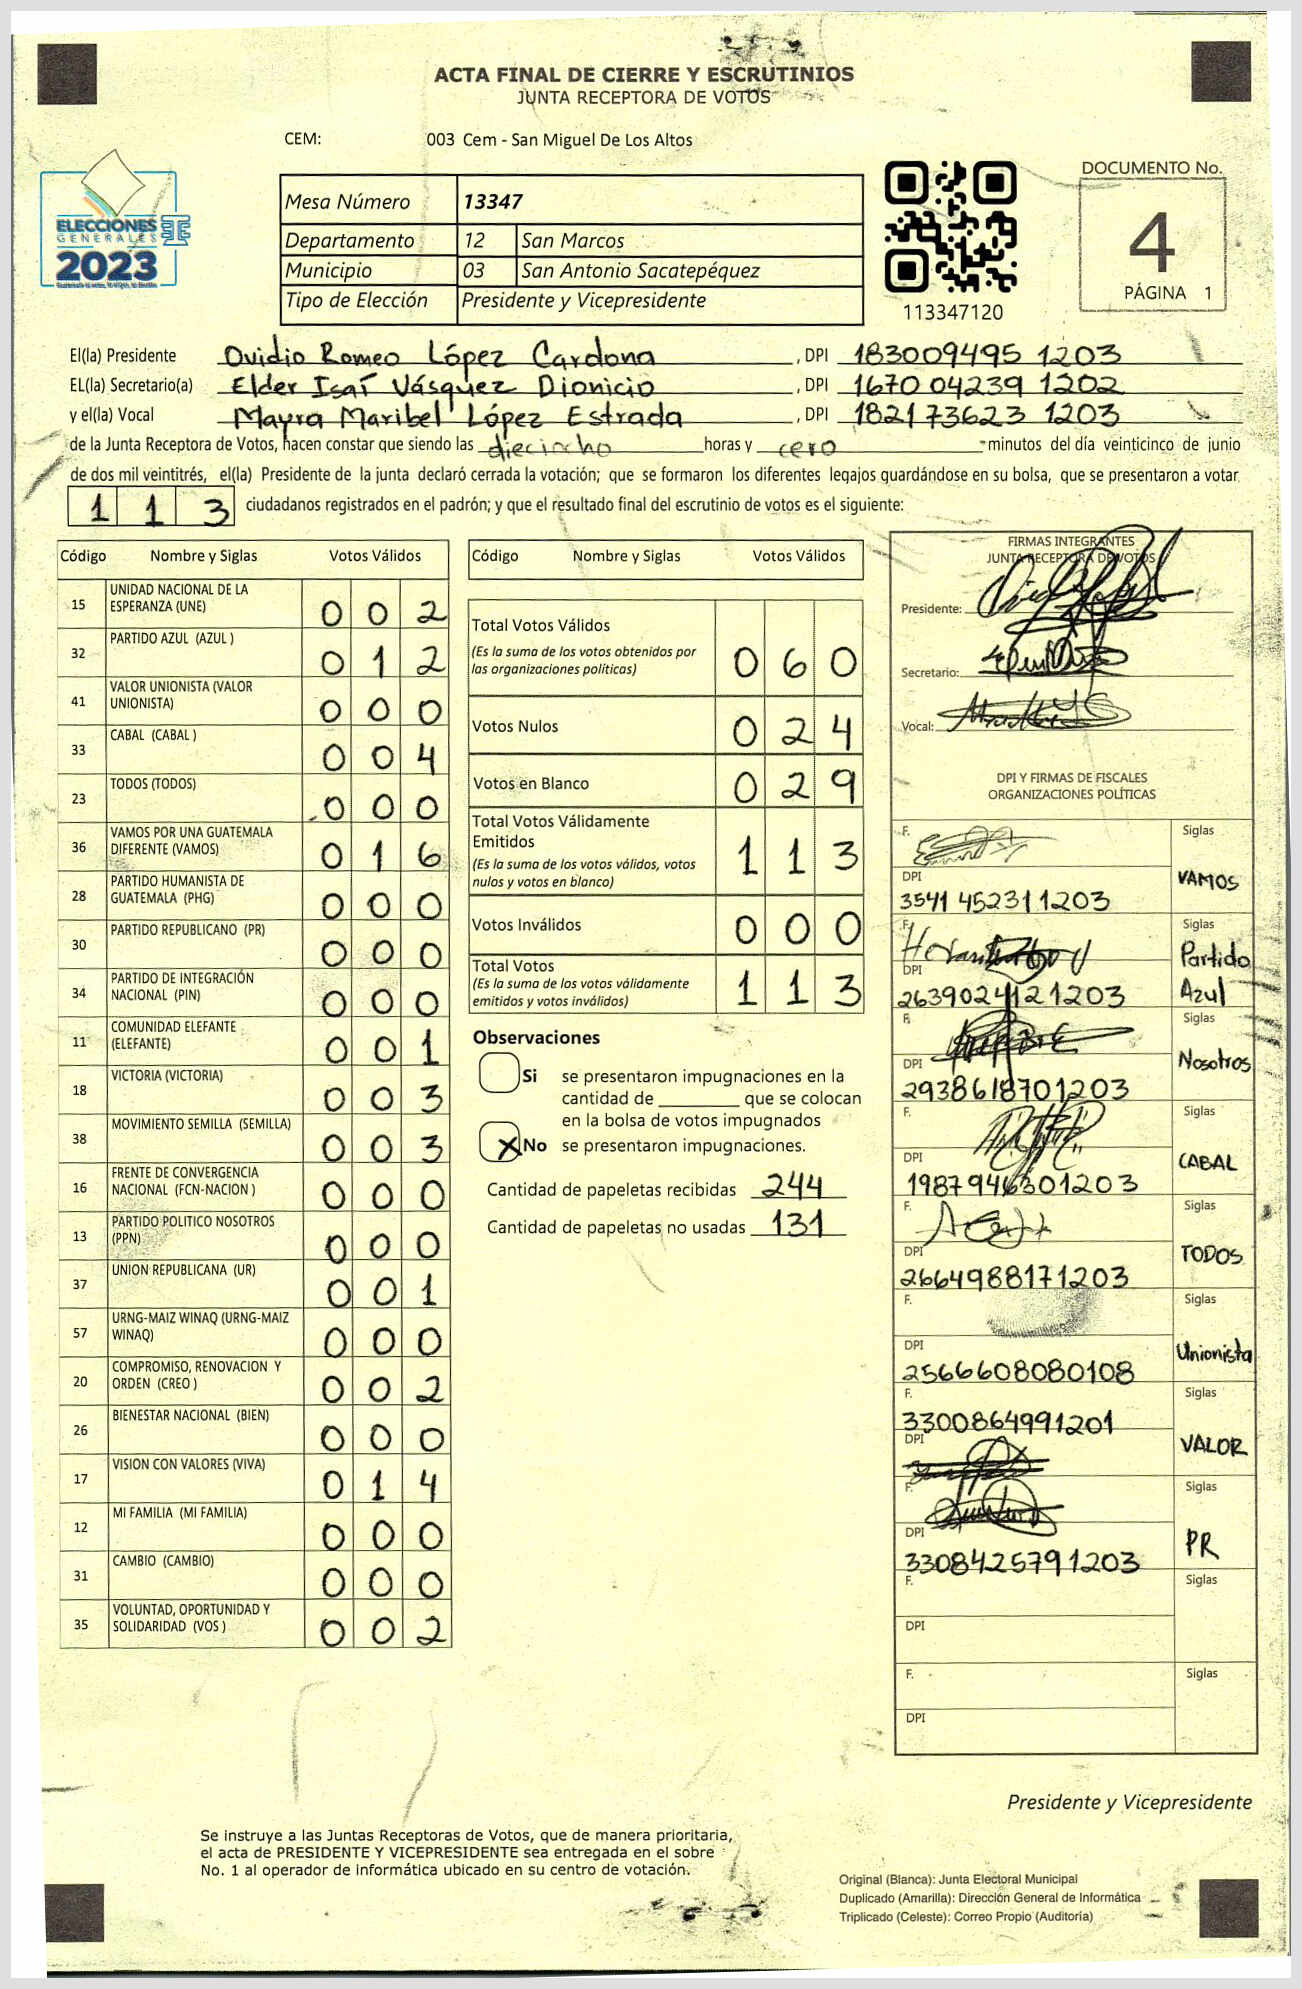 ACTA FINAL DE CIERRE Y ESCRUTINIOS
JUNTA RECEPTORA DE VOTOS
CEM: 003 Cem - San Miguel De Los Altos
ELECCIONES
GENERALES
2023
Mesa Número 13347
Departamento 12 San Marcos
Municipio 03 San Antonio Sacatepéquez
Tipo de Elección Presidente y Vicepresidente
113347120
DOCUMENTO No.
4
PÁGINA 1
El(la) Presidente Ovidio Romeo López Cardona , DPI 183009495 1203
EL(la) Secretario(a) Elder Isaí Vásquez Dionicio , DPI 1670 04239 1202
y el(la) Vocal Mayra Maribel López Estrada , DPI 182173623 1203
de la Junta Receptora de Votos, hacen constar que siendo las diecincho horas y cero minutos del día veinticinco de junio
de dos mil veintitrés, el(la) Presidente de la junta declaró cerrada la votación; que se formaron los diferentes legajos guardándose en su bolsa, que se presentaron a votar
1 1 3 ciudadanos registrados en el padrón; y que el resultado final del escrutinio de votos es el siguiente:
Código Nombre y Siglas Votos Válidos
15 UNIDAD NACIONAL DE LA ESPERANZA (UNE) 0 0 2
32 PARTIDO AZUL (AZUL ) 0 1 2
41 VALOR UNIONISTA (VALOR UNIONISTA) 0 0 0
33 CABAL (CABAL ) 0 0 4
23 TODOS (TODOS) 0 0 0
36 VAMOS POR UNA GUATEMALA DIFERENTE (VAMOS) 0 1 6
28 PARTIDO HUMANISTA DE GUATEMALA (PHG) 0 0 0
30 PARTIDO REPUBLICANO (PR) 0 0 0
34 PARTIDO DE INTEGRACIÓN NACIONAL (PIN) 0 0 0
11 COMUNIDAD ELEFANTE (ELEFANTE) 0 0 1
18 VICTORIA (VICTORIA) 0 0 3
38 MOVIMIENTO SEMILLA (SEMILLA) 0 0 3
16 FRENTE DE CONVERGENCIA NACIONAL (FCN-NACION ) 0 0 0
13 PARTIDO POLITICO NOSOTROS (PPN) 0 0 0
37 UNION REPUBLICANA (UR) 0 0 1
57 URNG-MAIZ WINAQ (URNG-MAIZ WINAQ) 0 0 0
20 COMPROMISO, RENOVACION Y ORDEN (CREO ) 0 0 2
26 BIENESTAR NACIONAL (BIEN) 0 0 0
17 VISION CON VALORES (VIVA) 0 1 4
12 MI FAMILIA (MI FAMILIA) 0 0 0
31 CAMBIO (CAMBIO) 0 0 0
35 VOLUNTAD, OPORTUNIDAD Y SOLIDARIDAD (VOS ) 0 0 2
Código Nombre y Siglas Votos Válidos
Total Votos Válidos 0 6 0
(Es la suma de los votos obtenidos por
las organizaciones politicas)
Votos Nulos 0 2 4
Votos en Blanco 0 2 9
Total Votos Válidamente
Emitidos 1 1 3
(Es la suma de los votos válidos, votos
nulos y votos en blanco)
Votos Inválidos 0 0 0
Total Votos 1 1 3
(Es la suma de los votos válidamente
emitidos y votos inválidos)
Observaciones
Si se presentaron impugnaciones en la
cantidad de ________ que se colocan
en la bolsa de votos impugnados
X No se presentaron impugnaciones.
Cantidad de papeletas recibidas 244
Cantidad de papeletas no usadas 131
FIRMAS INTEGRANTES
JUNTA RECEPTORA DE VOTOS
Presidente:
Secretario:
Vocal:
DPI Y FIRMAS DE FISCALES
ORGANIZACIONES POLÍTICAS
F. Siglas
DPI VAMOS
3541 452311203
F. Siglas
DPI Partido Azul
2639024121203
F. Siglas
DPI Nosotros
2938618701203
F. Siglas
DPI CABAL
1987946301203
F. Siglas
DPI TODOS
2664988171203
F. Siglas
DPI Unionista
2566608080108
F. Siglas
3300864991201
DPI VALOR
F. Siglas
DPI PR
3308425791203
F. Siglas
DPI
F. Siglas
DPI
Presidente y Vicepresidente
Se instruye a las Juntas Receptoras de Votos, que de manera prioritaria,
el acta de PRESIDENTE Y VICEPRESIDENTE sea entregada en el sobre
No. 1 al operador de informática ubicado en su centro de votación.
Original (Blanca): Junta Electoral Municipal
Duplicado (Amarilla): Dirección General de Informática
Triplicado (Celeste): Correo Propio (Auditoría)